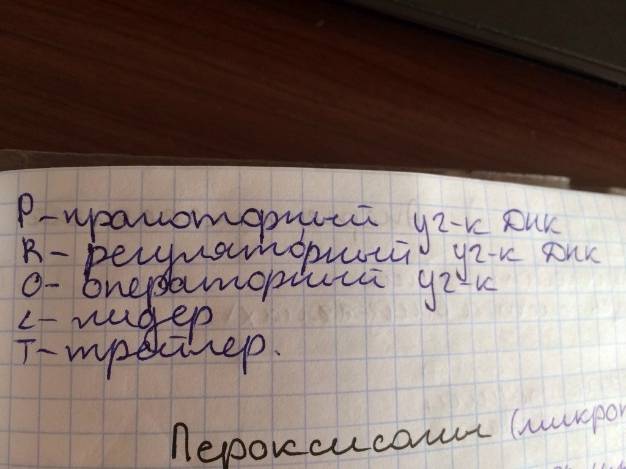 P - прамоторный уч-к ДНК
R - регуляторный уч-к ДНК
O - операторный уч-к
L - лидер
T - трейлер.
Пероксисомы